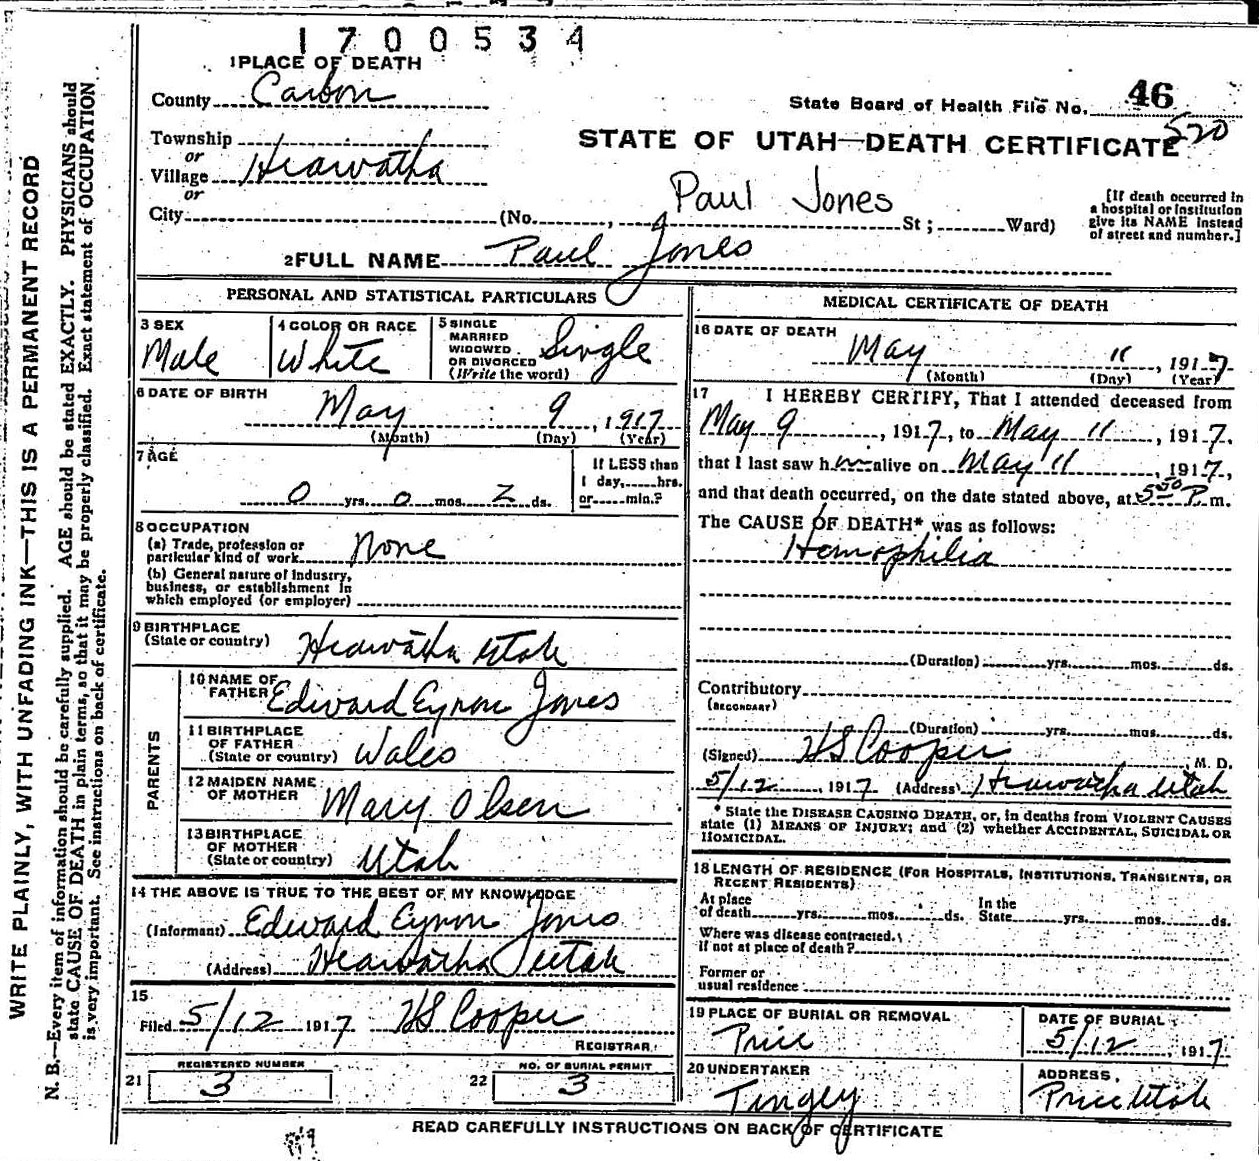 1700534
1 PLACE OF DEATH
County Carbon
State Board of Health File No. 46
520
Township
STATE OF UTAH—DEATH CERTIFICATE
or
Village Hiawatha
or
Paul Jones
City (No. , St; Ward)
[If death occurred in
a hospital or institution
give its NAME instead
of street and number.]
2 FULL NAME Paul Jones
PERSONAL AND STATISTICAL PARTICULARS
3 SEX
Male
4 COLOR OR RACE
White
5 SINGLE
MARRIED
WIDOWED
OR DIVORCED
(Write the word)
Single
6 DATE OF BIRTH
May 9, 1917
(Month) (Day) (Year)
7 AGE
0 yrs. 0 mos. 2 ds.
If LESS than
1 day, hrs.
or min.?
8 OCCUPATION
(a) Trade, profession or
particular kind of work None
(b) General nature of industry,
business, or establishment in
which employed (or employer)
9 BIRTHPLACE
(State or country) Hiawatha Utah
PARENTS
10 NAME OF
FATHER Edward Eynon Jones
11 BIRTHPLACE
OF FATHER
(State or country) Wales
12 MAIDEN NAME
OF MOTHER Mary Olsen
13 BIRTHPLACE
OF MOTHER
(State or country) Utah
14 THE ABOVE IS TRUE TO THE BEST OF MY KNOWLEDGE
(Informant) Edward Eynon Jones
(Address) Hiawatha Utah
15
Filed 5/12 1917 HS Cooper
REGISTRAR
21 REGISTERED NUMBER
3
22 NO. OF BURIAL PERMIT
3
MEDICAL CERTIFICATE OF DEATH
16 DATE OF DEATH
May 11, 1917
(Month) (Day) (Year)
17 I HEREBY CERTIFY, That I attended deceased from
May 9, 1917, to May 11, 1917,
that I last saw him alive on May 11, 1917,
and that death occurred, on the date stated above, at 5 50 P.m.
The CAUSE OF DEATH* was as follows:
Hemophilia
(Duration) yrs. mos. ds.
Contributory
(SECONDARY)
(Duration) yrs. mos. ds.
(Signed) HS Cooper, M. D.
5/12, 1917 (Address) Hiawatha Utah
* State the DISEASE CAUSING DEATH, or, in deaths from VIOLENT CAUSES
state (1) MEANS OF INJURY; and (2) whether ACCIDENTAL, SUICIDAL OR
HOMICIDAL.
18 LENGTH OF RESIDENCE (FOR HOSPITALS, INSTITUTIONS, TRANSIENTS, OR
RECENT RESIDENTS)
At place
of death yrs. mos. ds.
In the
State yrs. mos. ds.
Where was disease contracted,
if not at place of death?
Former or
usual residence
19 PLACE OF BURIAL OR REMOVAL
Price
DATE OF BURIAL
5/12, 1917
20 UNDERTAKER
Tingey
ADDRESS
Price Utah
READ CAREFULLY INSTRUCTIONS ON BACK OF CERTIFICATE
WRITE PLAINLY, WITH UNFADING INK—THIS IS A PERMANENT RECORD
N. B.—Every item of information should be carefully supplied. AGE should be stated EXACTLY. PHYSICIANS should
state CAUSE OF DEATH in plain terms, so that it may be properly classified. Exact statement of OCCUPATION
is very important. See instructions on back of certificate.